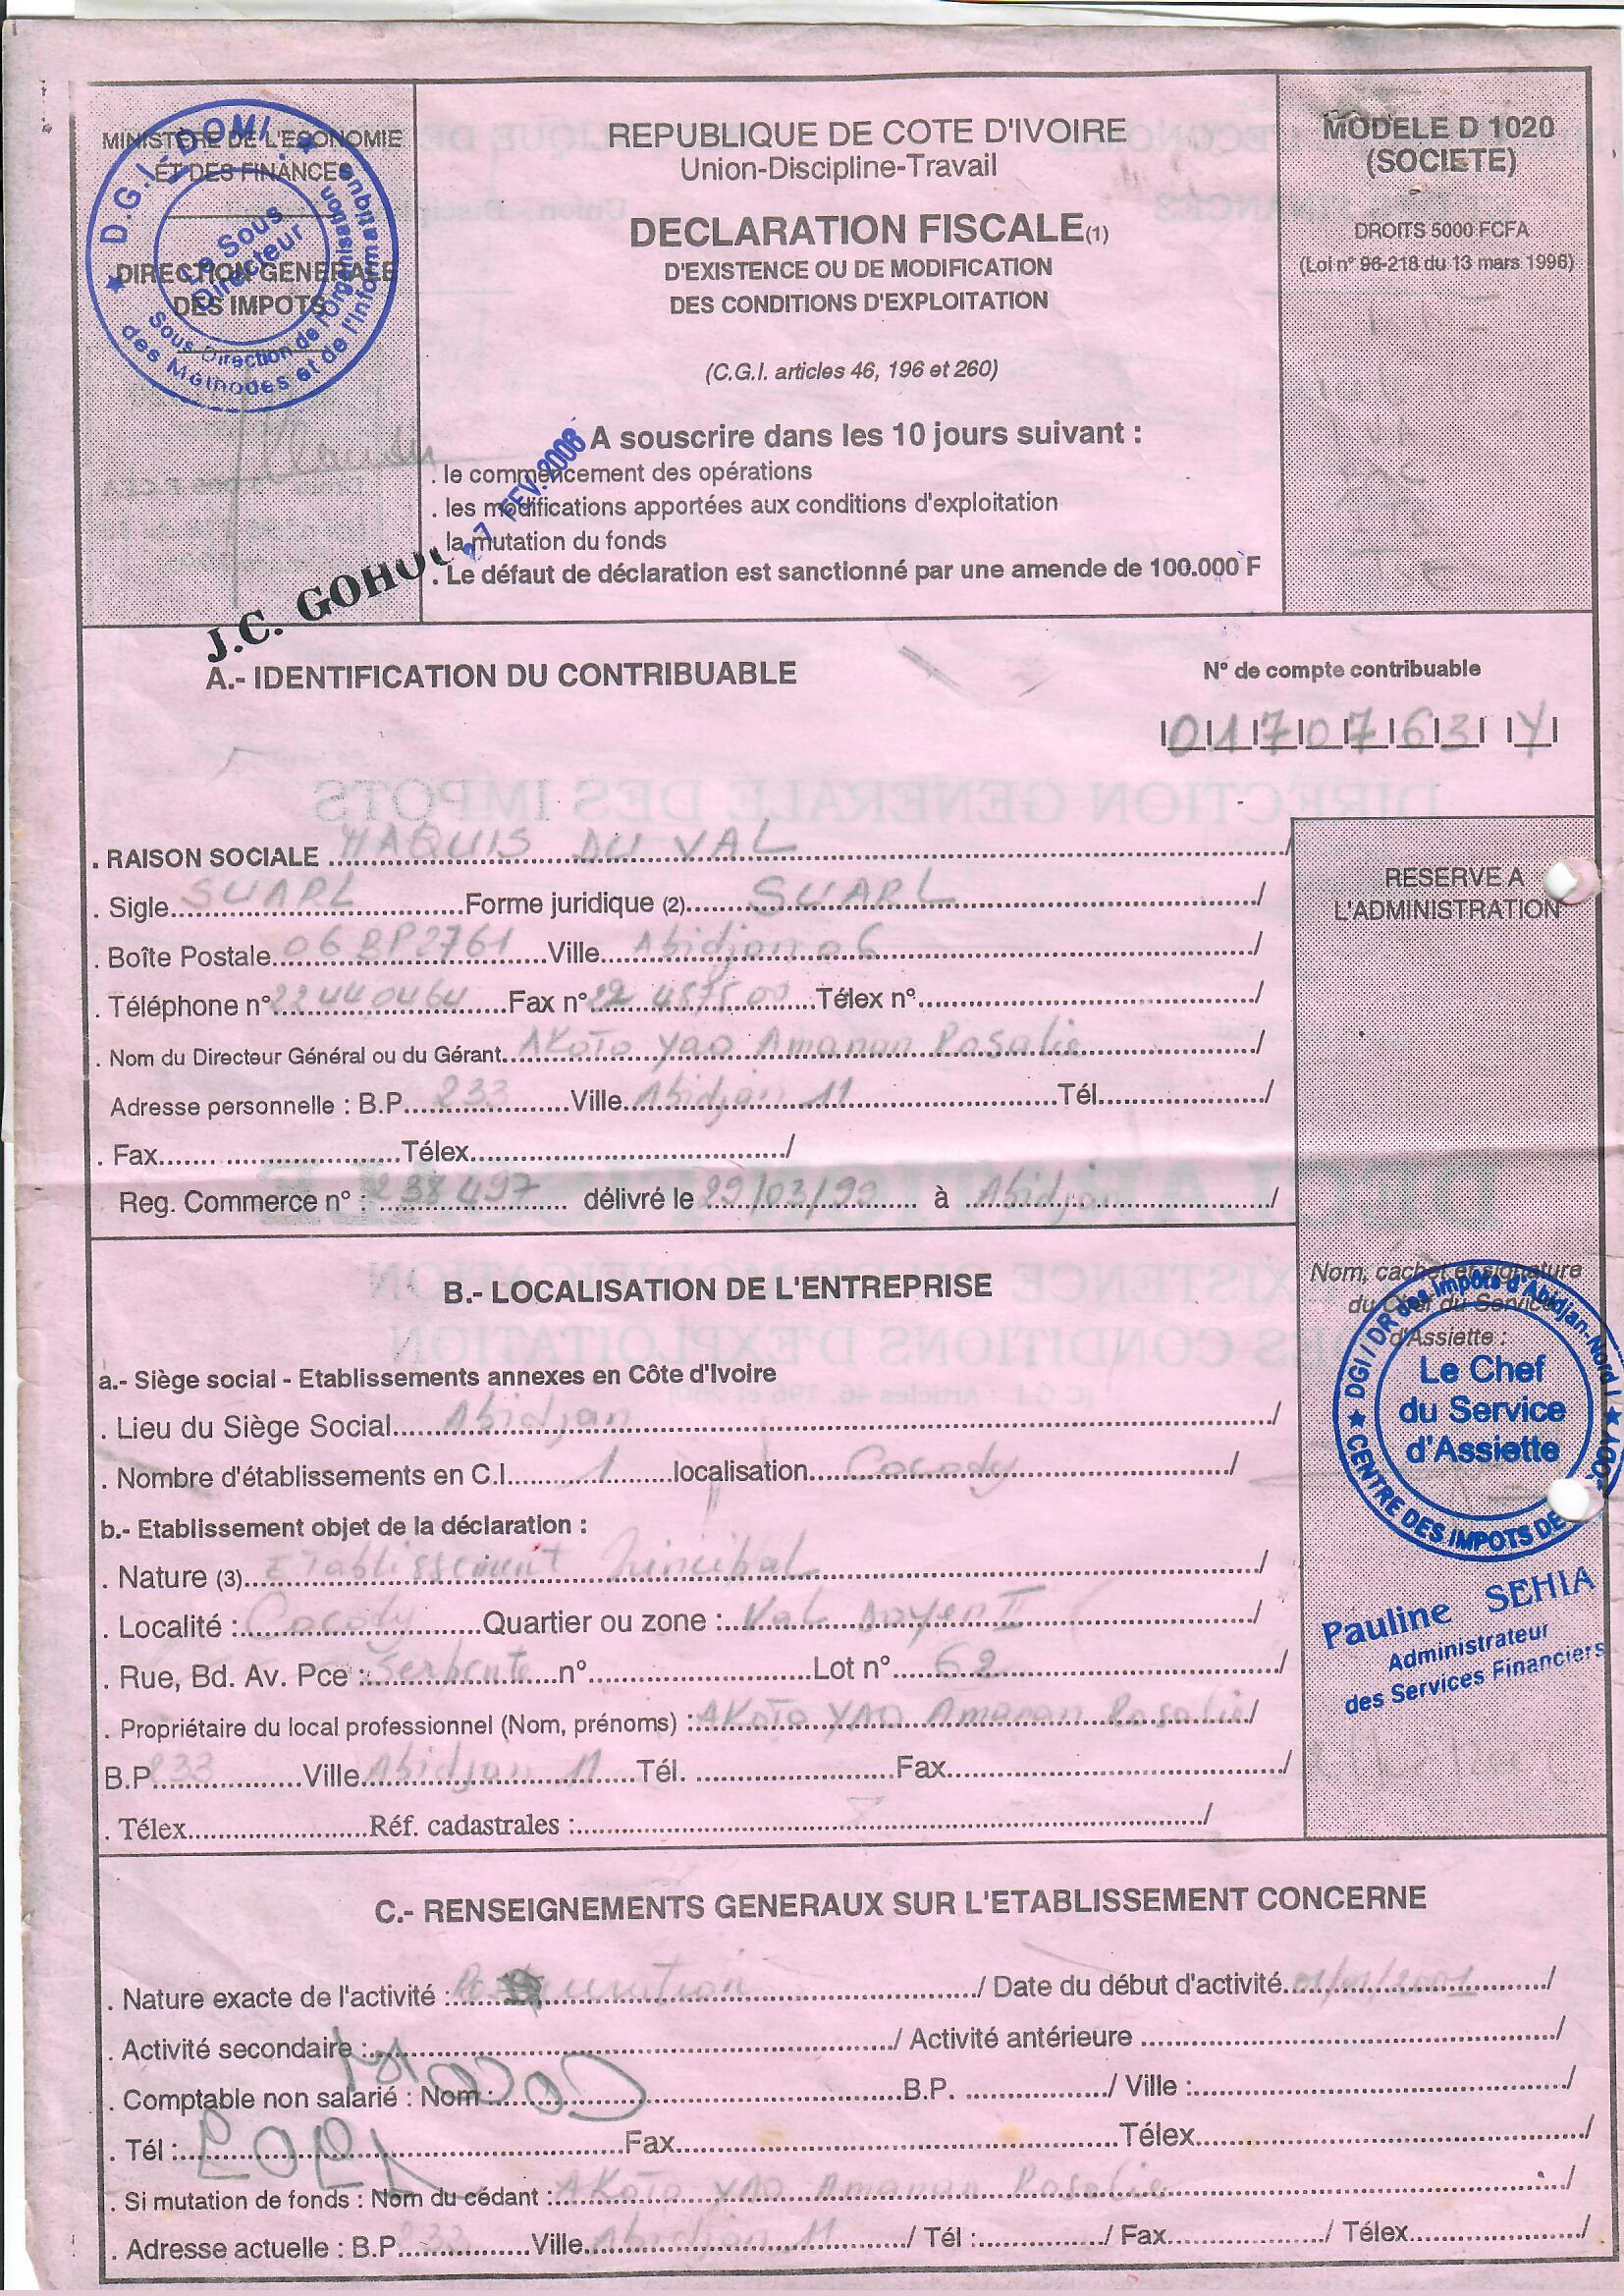 MINISTERE DE L'ECONOMIE
ET DES FINANCES
DIRECTION GENERALE
DES IMPOTS
D.G.I. / DOMI
Sous Direction de l'Organisation
des Méthodes et de l'Informatique
Le Sous
Directeur
J.C. GOHOU
REPUBLIQUE DE COTE D'IVOIRE
Union-Discipline-Travail
DECLARATION FISCALE(1)
D'EXISTENCE OU DE MODIFICATION
DES CONDITIONS D'EXPLOITATION
(C.G.I. articles 46, 196 et 260)
27 FEV. 2008
A souscrire dans les 10 jours suivant :
. le commencement des opérations
. les modifications apportées aux conditions d'exploitation
. la mutation du fonds
. Le défaut de déclaration est sanctionné par une amende de 100.000 F
MODELE D 1020
(SOCIETE)
DROITS 5000 FCFA
(Loi n° 96-218 du 13 mars 1996)
A.- IDENTIFICATION DU CONTRIBUABLE
N° de compte contribuable
|0|1|7|0|7|6|3| |Y|
. RAISON SOCIALE MAQUIS DU VAL /
. Sigle SUARL Forme juridique (2) SUARL /
. Boîte Postale 06 BP 2761 Ville Abidjan 06 /
. Téléphone n° 22440464 Fax n° 22 457500 Télex n° /
. Nom du Directeur Général ou du Gérant AKOTO Yao Amanan Rosalie /
Adresse personnelle : B.P. 233 Ville Abidjan 11 Tél. /
. Fax Télex /
Reg. Commerce n° : 238497 délivré le 29/03/99 à Abidjan /
RESERVE A
L'ADMINISTRATION
Nom, cachet et signature
du Chef du Service
d'Assiette :
DGI / DR des Impôts d'Abidjan-Nord I
CENTRE DES IMPOTS DE
Le Chef
du Service
d'Assiette
Pauline SEHIA
Administrateur
des Services Financiers
B.- LOCALISATION DE L'ENTREPRISE
a.- Siège social - Etablissements annexes en Côte d'Ivoire
. Lieu du Siège Social Abidjan /
. Nombre d'établissements en C.I. 1 localisation Cocody /
b.- Etablissement objet de la déclaration :
. Nature (3) Etablissement Principal /
. Localité : Cocody Quartier ou zone : Val Doyen II /
. Rue, Bd. Av. Pce : Serpente n° Lot n° 62 /
. Propriétaire du local professionnel (Nom, prénoms) : AKOTO YAO Amanan Rosalie /
B.P. 233 Ville Abidjan 11 Tél. Fax /
. Télex Réf. cadastrales : /
C.- RENSEIGNEMENTS GENERAUX SUR L'ETABLISSEMENT CONCERNE
. Nature exacte de l'activité : / Date du début d'activité /
. Activité secondaire : / Activité antérieure /
. Comptable non salarié : Nom : B.P. / Ville : /
. Tél : Fax Télex /
. Si mutation de fonds : Nom du cédant : AKOTO YAO Amanan Rosalie /
. Adresse actuelle : B.P. 233 Ville Abidjan 11 / Tél : / Fax / Télex /